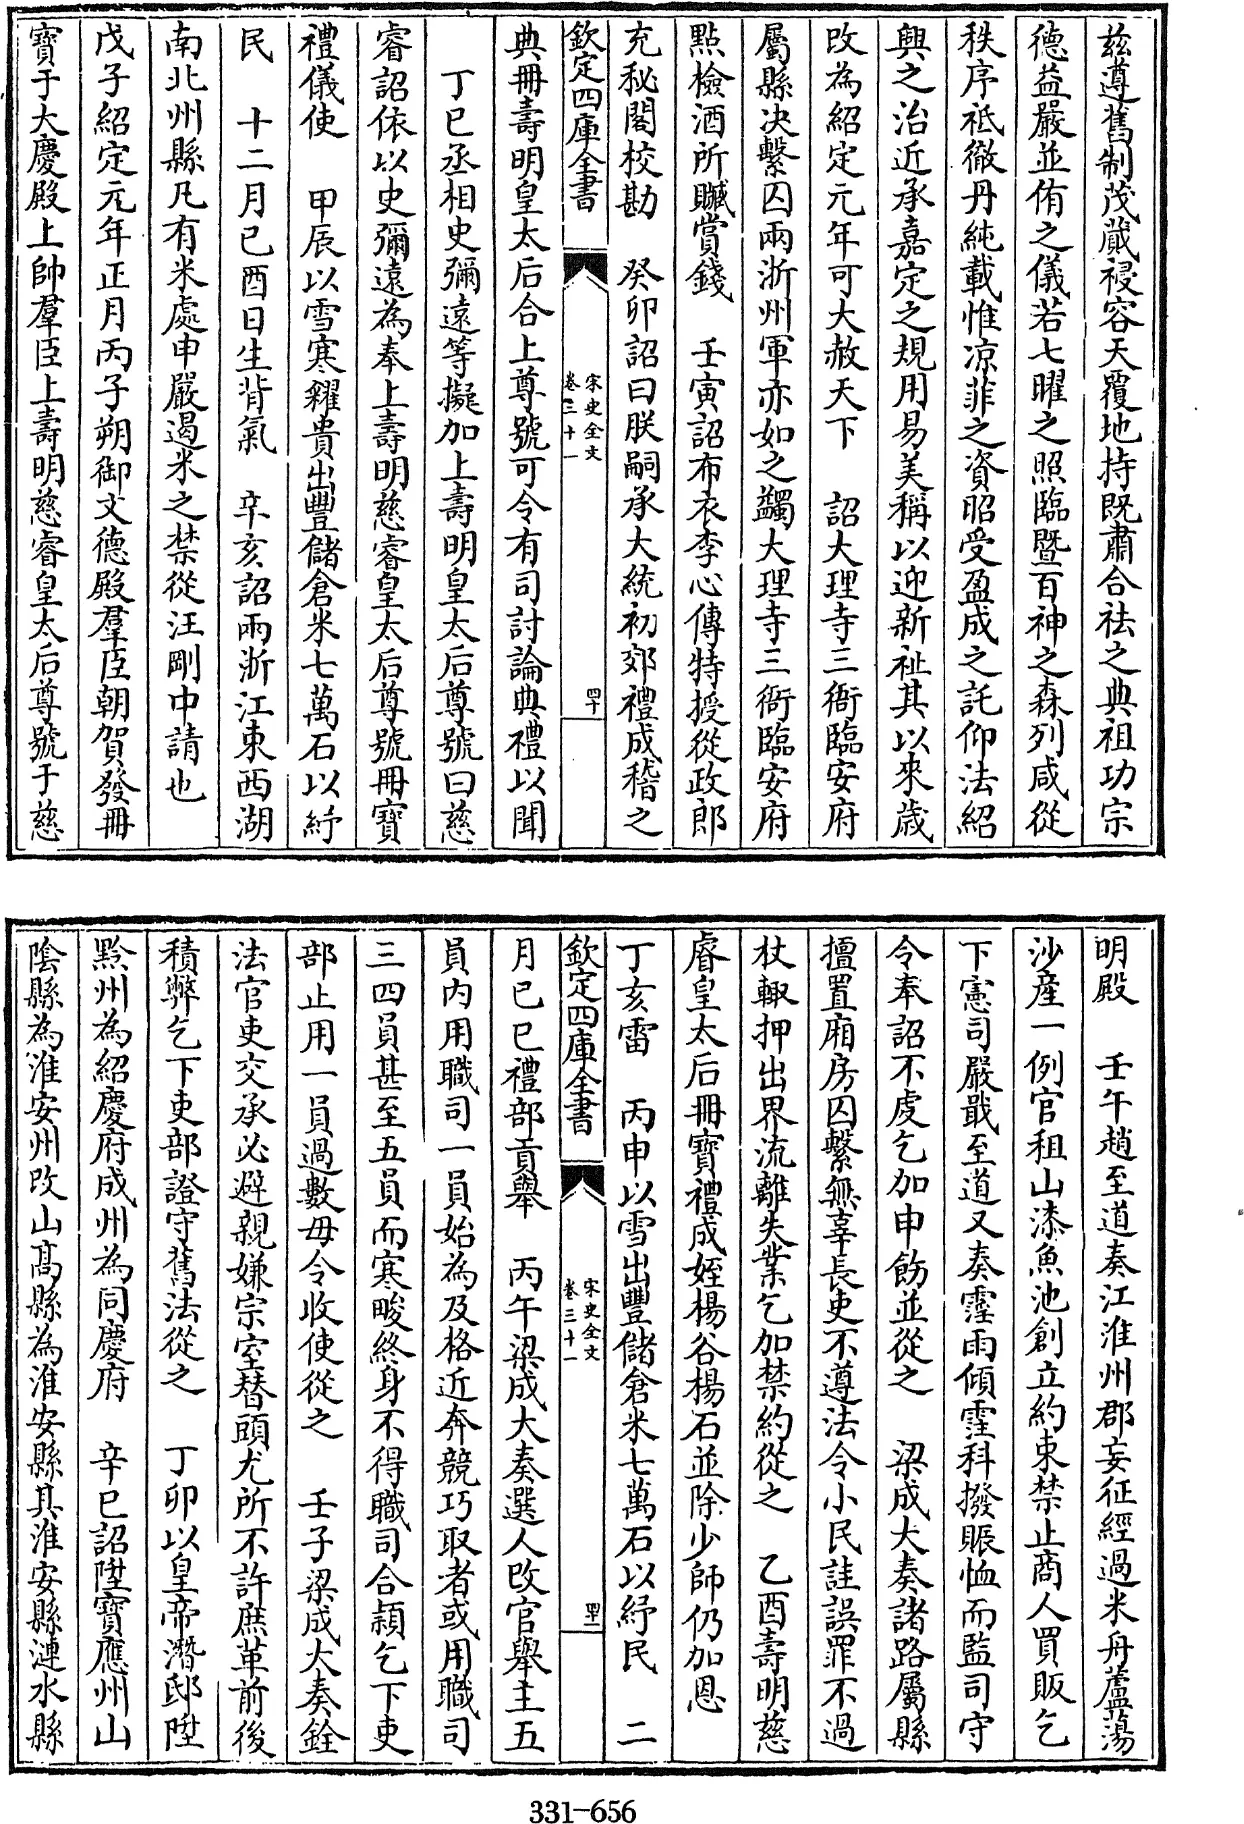 兹遵舊制茂蕆祲容天覆地持既肅合祛之典祖功宗
德益嚴並侑之儀若七曜之照臨暨百神之森列咸從
秩序祗徹丹純載惟凉菲之資昭受盈成之託仰法紹
興之治近承嘉定之規用易美稱以迎新祉其以來歲
改為紹定元年可大赦天下　詔大理寺三衙臨安府
屬縣决繫囚兩浙州軍亦如之蠲大理寺三衙臨安府
點檢酒所贓賞錢　壬寅詔布衣李心傳特授從政郎
充秘閣校勘　癸卯詔曰朕嗣承大統初郊禮成稽之
欽定四庫全書
宋史全文
卷三十一
四十
典冊壽明皇太后合上尊號可令有司討論典禮以聞
丁巳丞相史彌遠等擬加上壽明皇太后尊號曰慈
睿詔依以史彌遠為奉上壽明慈睿皇太后尊號冊寶
禮儀使　甲辰以雪寒糴貴出豐儲倉米七萬石以紓
民　十二月已酉日生背氣　辛亥詔兩浙江東西湖
南北州縣凡有米處申嚴遏米之禁從汪剛中請也
戊子紹定元年正月丙子朔御文德殿羣臣朝賀發冊
寶于大慶殿上帥羣臣上壽明慈睿皇太后尊號于慈
明殿　壬午趙至道奏江淮州郡妄征經過米舟蘆蕩
沙產一例官租山漆魚池創立約束禁止商人買販乞
下憲司嚴戢至道又奏霪雨傾霪科撥賑恤而監司守
令奉詔不虔乞加申飭並從之　梁成大奏諸路屬縣
擅置廂房囚繫無辜長吏不遵法令小民詿誤罪不過
杖輙押出界流離失業乞加禁約從之　乙酉壽明慈
睿皇太后冊寶禮成姪楊谷楊石並除少師仍加恩
丁亥雷　丙申以雪出豐儲倉米七萬石以紓民　二
欽定四庫全書
宋史全文
卷三十一
四十一
月已巳禮部貢舉　丙午梁成大奏選人改官舉主五
員内用職司一員始為及格近奔競巧取者或用職司
三四員甚至五員而寒畯終身不得職司合頴乞下吏
部止用一員過數毋令收使從之　壬子梁成大奏銓
法官吏交承必避親嫌宗室替頭尤所不許庶革前後
積弊乞下吏部證守舊法從之　丁卯以皇帝濳邸陞
黔州為紹慶府成州為同慶府　辛巳詔陞寶應州山
陰縣為淮安州改山髙縣為淮安縣其淮安縣漣水縣
331-656